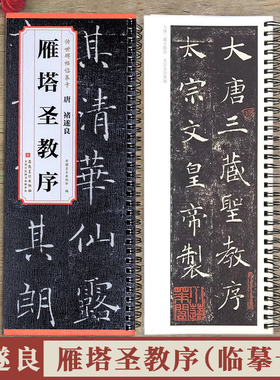 传世碑帖临摹卡
唐 褚遂良
雁塔圣教序
其清華仙露
其朗
大唐三藏聖教序
太宗文皇帝製
遂良 雁塔圣教序(临摹